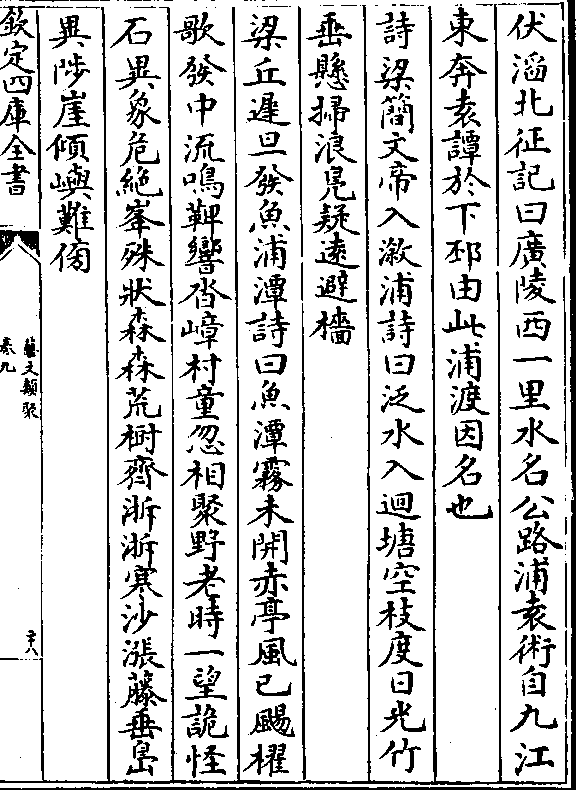 伏滔北征記曰廣陵西一里水名公路浦袁術自九江
東奔袁譚於下邳由此浦渡因名也
詩梁簡文帝入漵浦詩曰泛水入迴塘空枝度日光竹
垂懸掃浪鳬疑遠避檣
梁丘遲旦發魚浦潭詩曰魚潭霧未開赤亭風已颺櫂
歌發中流鳴鞞響沓嶂村童忽相聚野老時一望詭怪
石異象危絶峯殊狀森森荒樹齊淅淅寒沙漲藤垂島
異陟崖傾嶼難傍
欽定四庫全書
藝文類聚
卷九
二十八